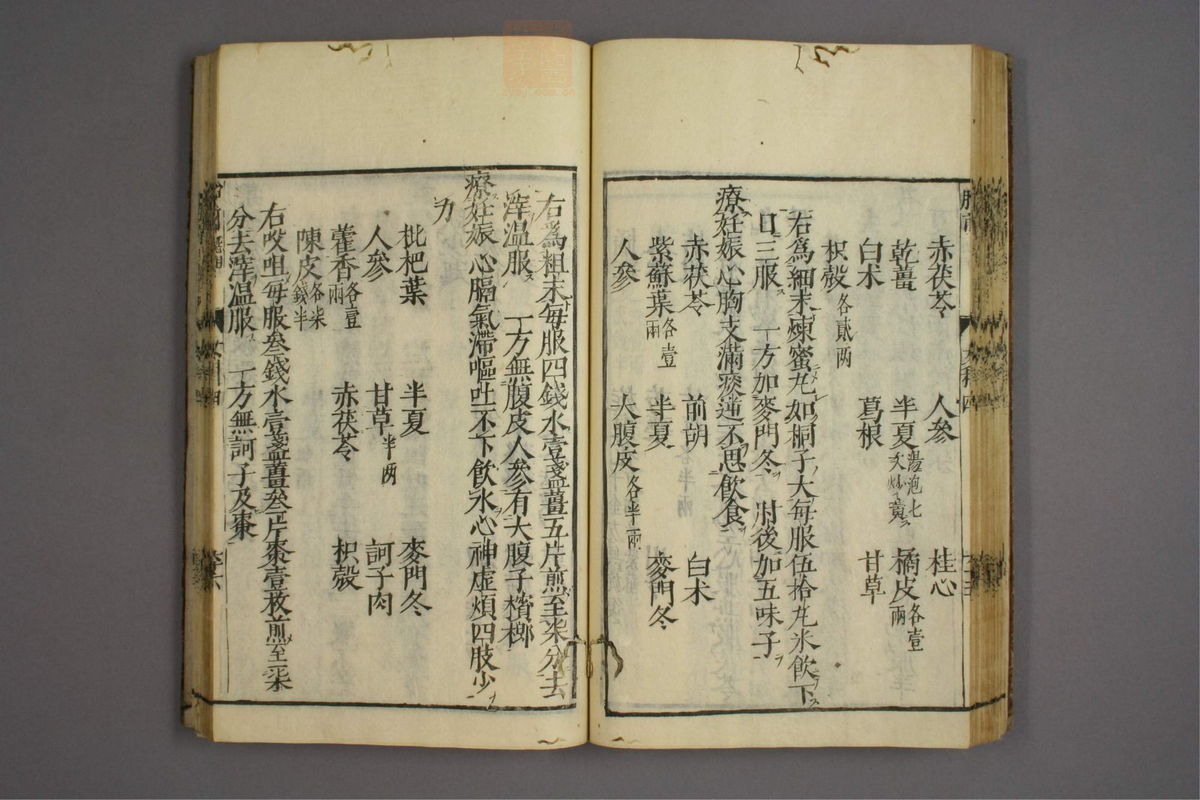 赤茯苓　人參　桂心
乾薑　半夏湯泡七次炒黄　橘皮各壹兩
白朮　葛根　甘草
枳殼各貳兩
右爲細末煉蜜丸如桐子大每服伍拾丸米飲下
日三服　一方加麥門冬　肘後加五味子
療妊娠心胸支滿痰逆不思飲食
赤茯苓　前胡　白朮
紫蘇葉各壹兩　半夏　麥門冬
人參　大腹皮各半兩
右爲粗末每服四錢水壹盞薑五片煎至柒分去
滓温服　一方無腹皮人參有大腹子檳榔
療妊娠心膈氣滯嘔吐不下飲水心神虚煩四肢少
力
枇杷葉　半夏　麥門冬
人參　甘草半两　訶子肉
藿香各壹兩　赤茯苓　枳殼
陳皮各柒錢半
右㕮咀每服叁錢水壹盞薑叁片棗壹枚煎至柒
分去滓温服　一方無訶子及棗